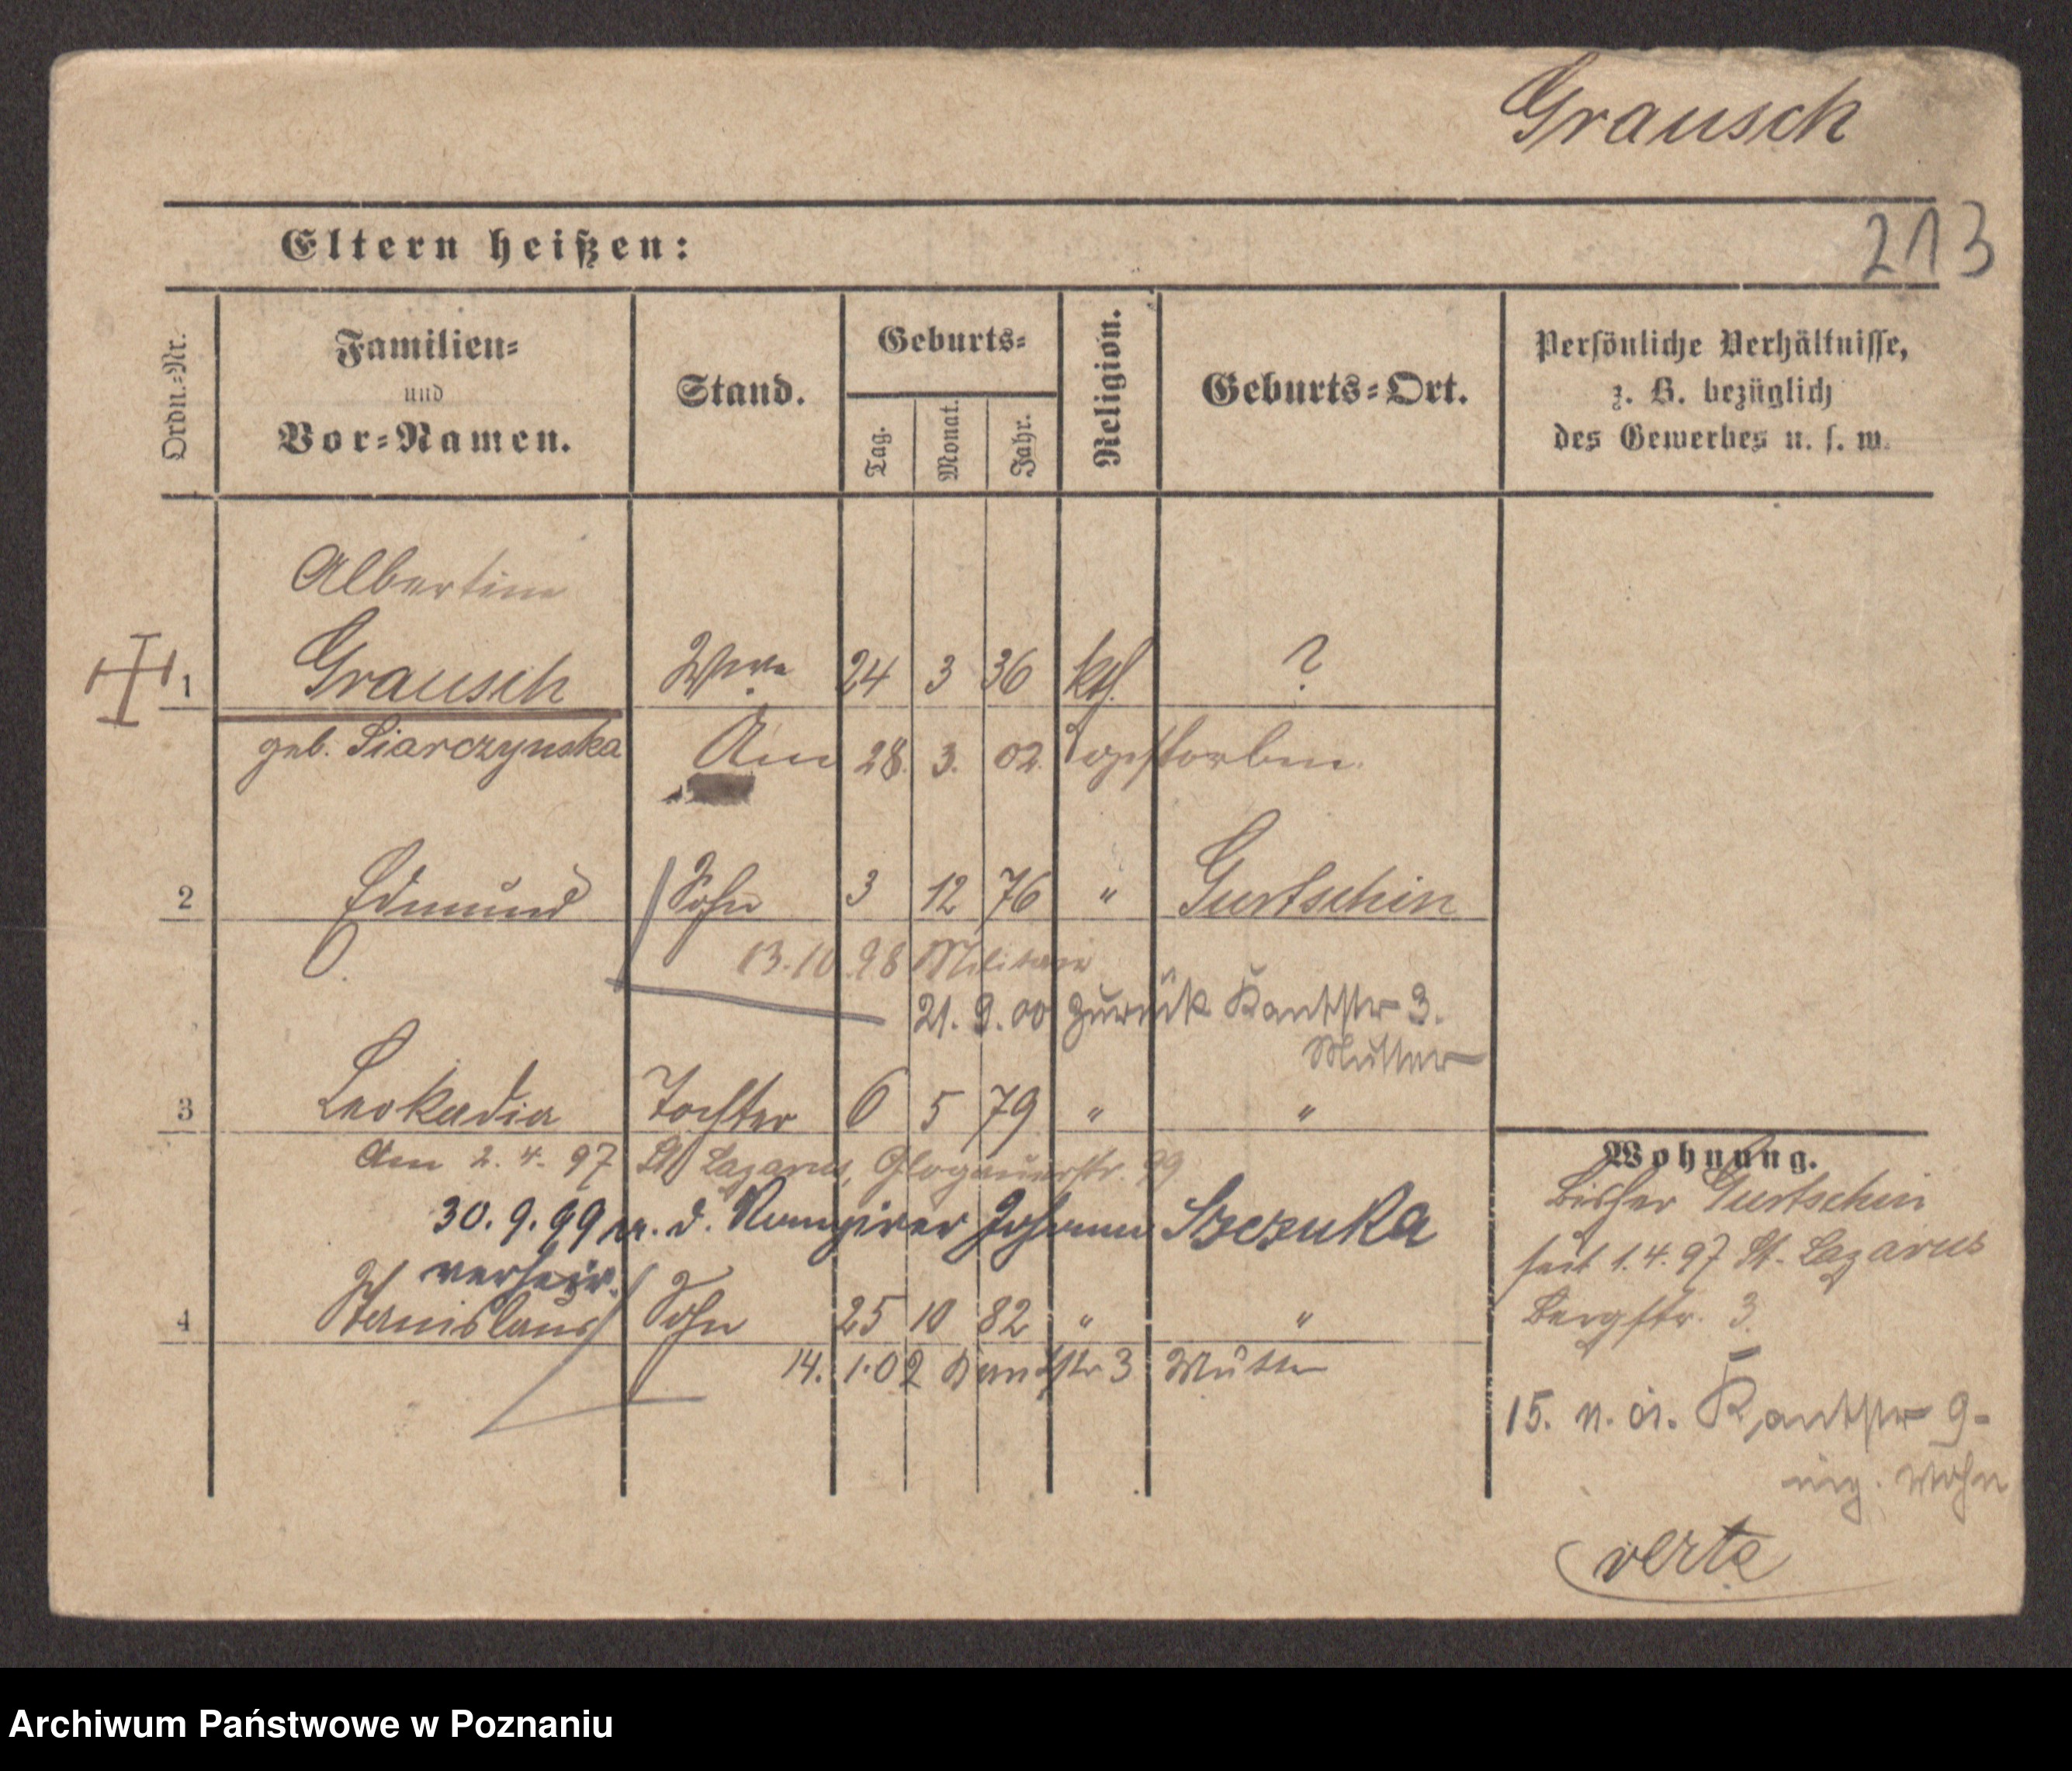 Grausch
213
Eltern heißen:
Ordn.-Nr.
Familien-
und
Vor-Namen.
Stand.
Geburts-
Tag.
Monat.
Jahr.
Religion.
Geburts-Ort.
Persönliche Verhältnisse,
z. B. bezüglich
des Gewerbes u. s. w.
Albertine
1 Grausch Wwe 24 3 36 kth. ?
geb. Siarczynska Am 28. 3. 02. gestorben.
2 Edmund Sohn 3 12 76 " Gurtschin
13.10.98 Militair
21. 9. 00 zurück Kantstr 3.
Mutter
3 Leokadia Tochter 6 5 79 " "
Am 2. 4. 97 St Lazarus, Glogauerstr. 99
30. 9. 99 m. d. Johann Szczuka
verheir.
4 Stanislaus Sohn 25 10 82 " "
14. 1. 02 Kantstr 3 Mutter
Wohnung.
Bisher Gurtschin
seit 1. 4. 97 St. Lazarus
Bergstr. 3.
15. Kantstr 9-
Wohn
verte
Archiwum Państwowe w Poznaniu